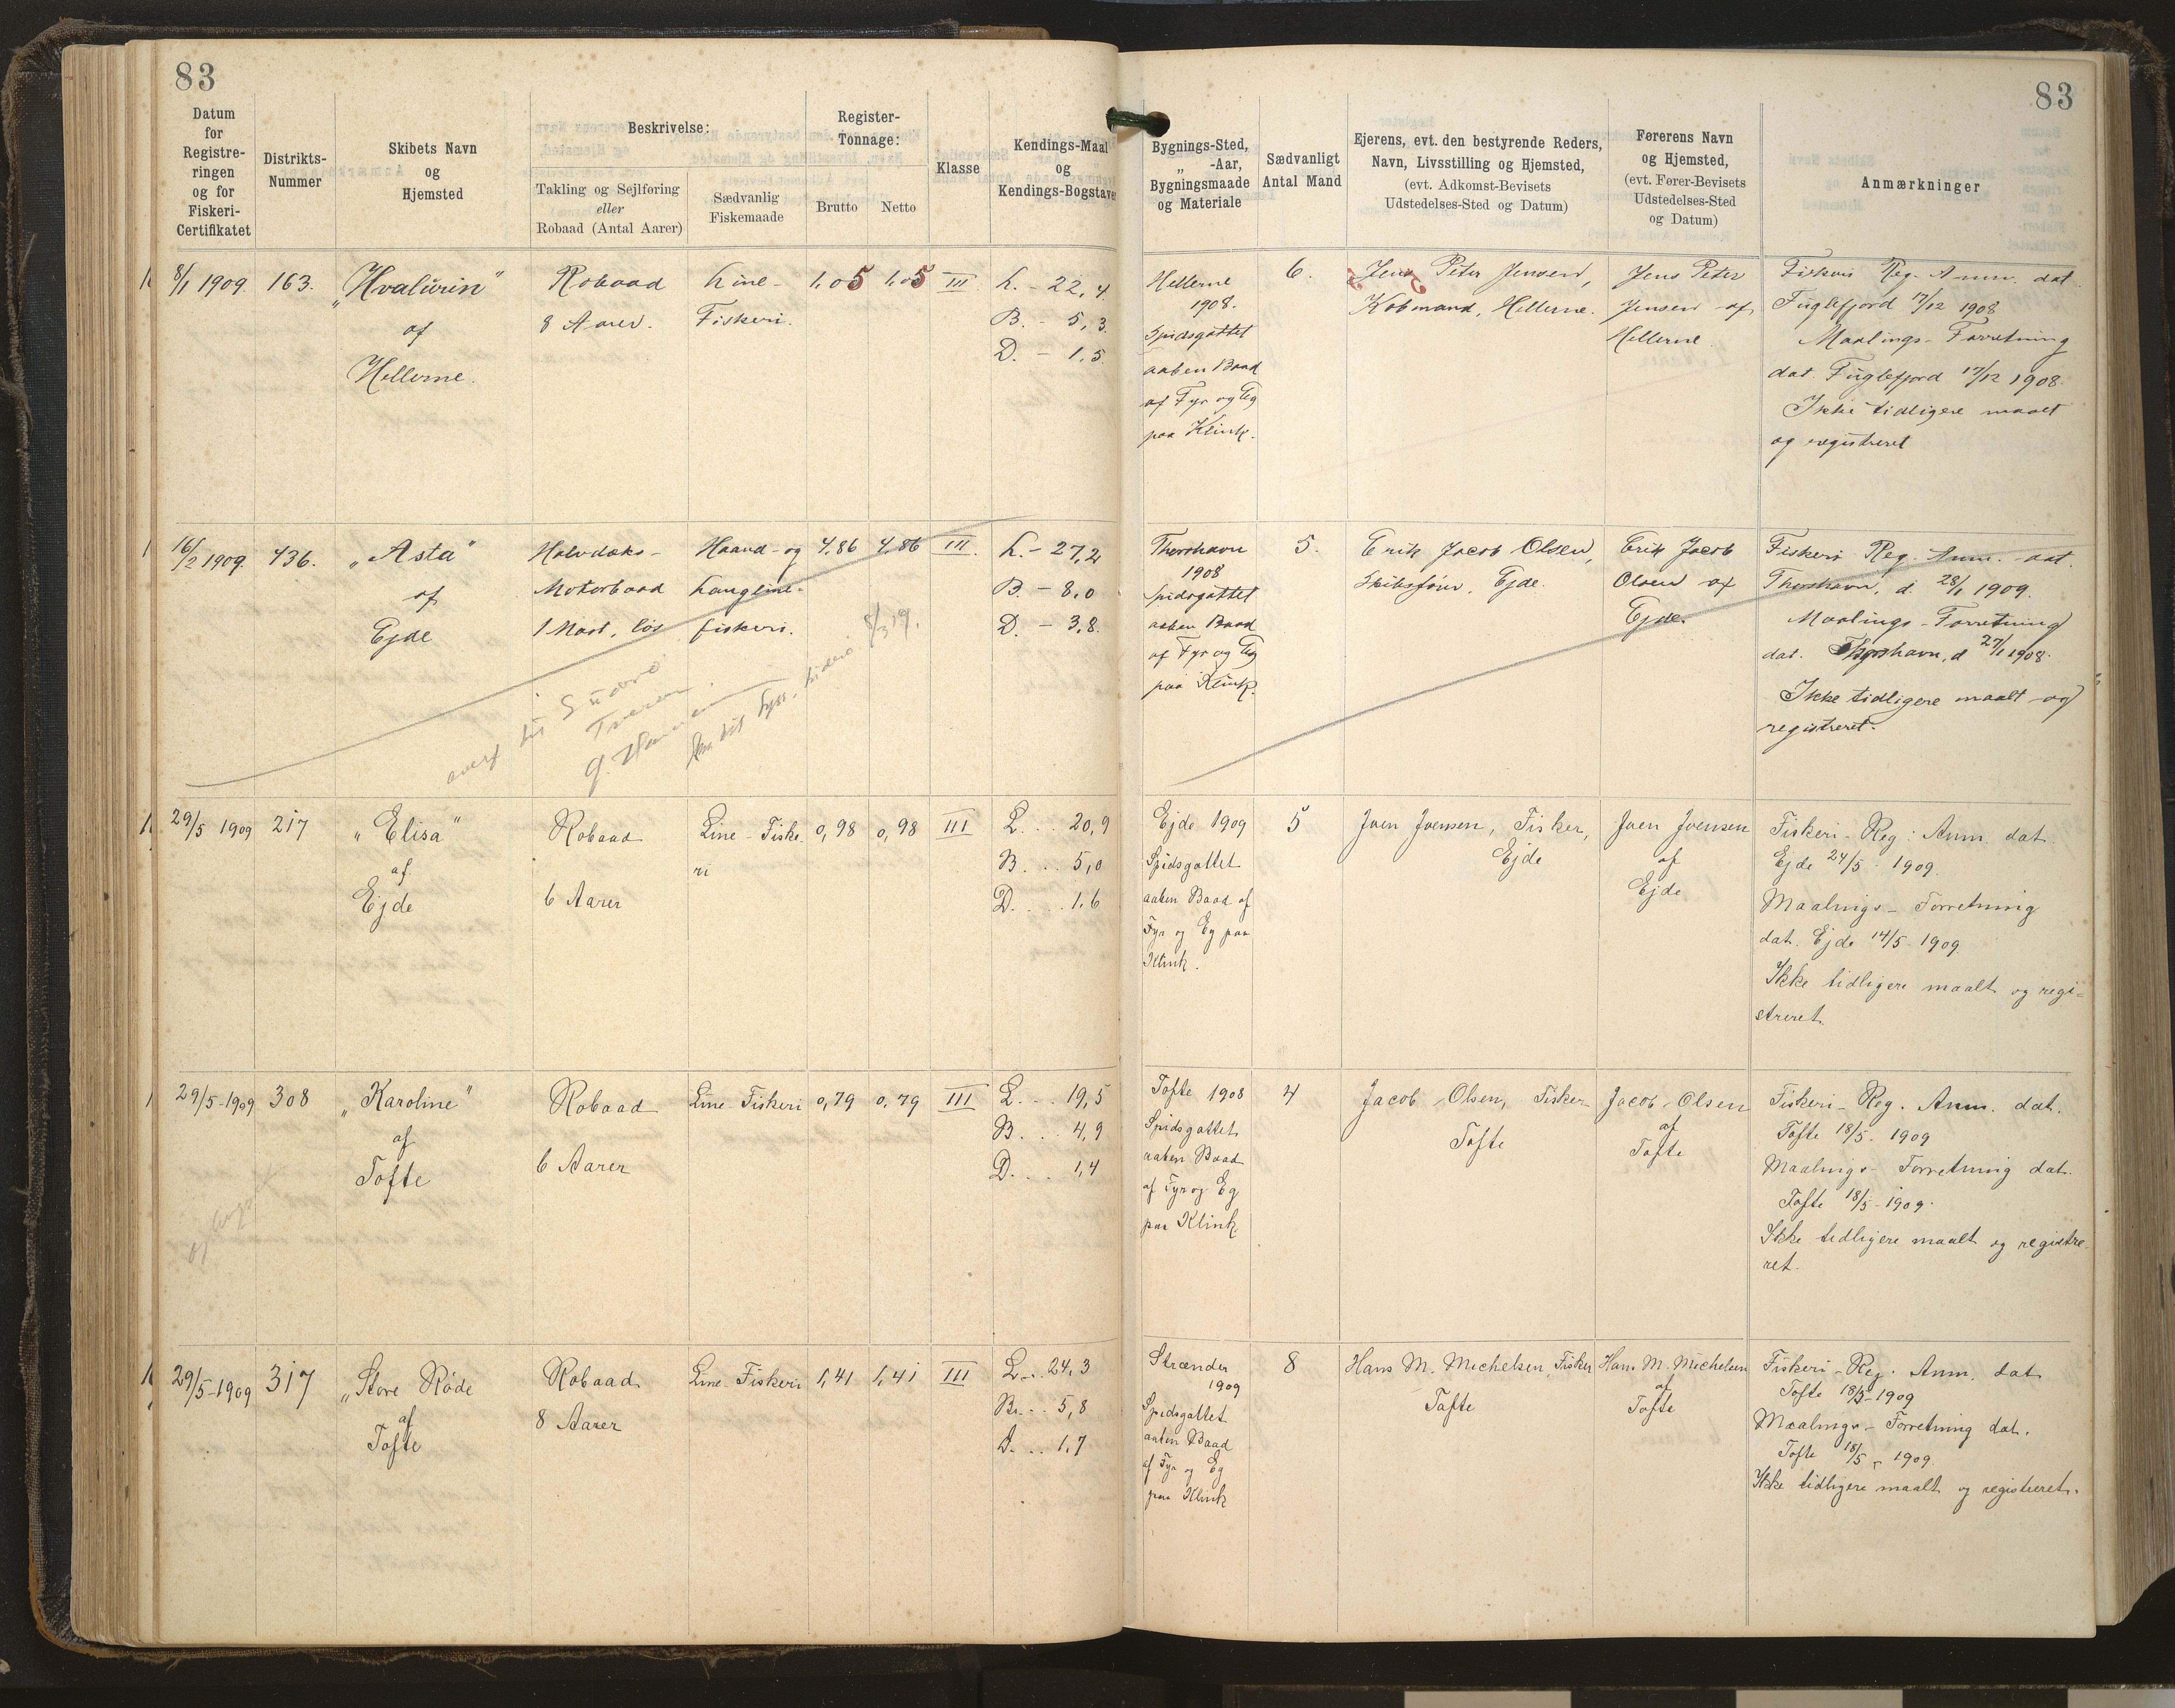 83
83
Datum
for
Registre-
ringen
og for
Fiskeri-
Certifikatet
Distrikts-
Nummer
Skibets Navn
og
Hjemsted
Beskrivelse:
Takling og Sejlføring
eller
Robaad (Antal Aarer)
Sædvanlig
Fiskemaade
Register-
Tonnage:
Brutto
Netto
Klasse
Kendings-Maal
og
Kendings-Bogstaver
Bygnings-Sted,
„ -Aar,
Bygningsmaade
og Materiale
Sædvanligt
Antal Mand
Ejerens, evt. den bestyrende Reders,
Navn, Livsstilling og Hjemsted,
(evt. Adkomst-Bevisets
Udstedelses-Sted og Datum)
Førerens Navn
og Hjemsted,
(evt. Fører-Bevisets
Udstedelses-Sted
og Datum)
Anmærkninger
8/1 1909.
163.
„Hvalurin"
af
Hellerne.
Robaad
8 Aarer.
Line-
Fiskeri.
1,05
1,05
III.
L. - 22,4
B. - 5,3
D. - 1,5
Hellerne
1908.
Spidsgattet
aaben Baad
af Fyr og Eg
paa Klink.
6.
Jens Peter Jensen,
Købmand, Hellerne.
Jens Peter
Jensen af
Hellerne
Fiskeri Reg. Anm. dat.
Fuglefjord 17/12 1908
Maalings-Forretning
dat. Fuglefjord 17/12 1908.
Ikke tidligere maalt
og registreret
16/2 1909.
436.
„Asta"
af
Ejde
Halvdæks-
Motorbaad
1 Mast, løs
Haand- og
Langline-
fiskeri.
4,86
4,86
III.
L. - 27,2
B. - 8,0
D. - 3,8.
Thorshavn
1908
Spidsgattet
aaben Baad
af Fyr og Eg
paa Klink.
5.
Erik Jacob Olsen,
Skibsfører, Ejde.
Erik Jacob
Olsen af
Ejde.
Fiskeri Reg. Anm. dat.
Thorshavn, d. 28/1 1909.
Maalings-Forretning
dat. Thorshavn, d 27/1 1908.
Ikke tidligere maalt og
registreret.
overf til Suderø
8/3 19.
29/5 1909
217
„Elisa"
af
Ejde
Robaad
6 Aarer
Line-Fiske
ri
0,98
0,98
III
L. . . 20,9
B. . . 5,0
D. . . . 1,6
Ejde 1909
Spidsgattet
aaben Baad af
Fyr og Eg paa
Klink.
5
Joen Joensen, Fisker,
Ejde
Joen Joensen
af
Ejde
Fiskeri-Reg. Anm. dat
Ejde 24/5 - 1909.
Maalings-Forretning
dat. Ejde 14/5 1909
Ikke tidligere maalt og regi=
streret.
29/5-1909
308
„Karoline"
af
Tofte
Robaad
6 Aarer
Line-Fiskeri
0,79
0,79
III
L. . . 19,5
B. . . 4,9
D. . . . 1,4
Tofte 1908
Spidsgattet
aaben Baad
af Fyr og Eg
paa Klink
4
Jacob Olsen, Fisker
Tofte
Jacob Olsen
af
Tofte
Fiskeri-Reg. Anm. dat.
Tofte 18/5 - 1909
Maalings-Forretning dat.
Tofte 18/5 - 1909.
Ikke tidligere maalt og registre
ret.
29/5-1909
317
„Store Røde
af
Tofte
Robaad
8 Aarer
Line-Fiskeri
1,41
1,41
III
L... 24,3
B... 5,8
D. .. 1,7
Strænder
1909
Spidsgattet
aaben Baad
af Fyr og Eg
paa Klink
8
Hans M. Michelsen, Fisker
Tofte
Hans M. Michelsen
af
Tofte
Fiskeri-Reg. Anm. dat
Tofte 18/5-1909
Maalings-Forretning dat.
Tofte 18/5 - 1909.
Ikke tidligere maalt og registreret.